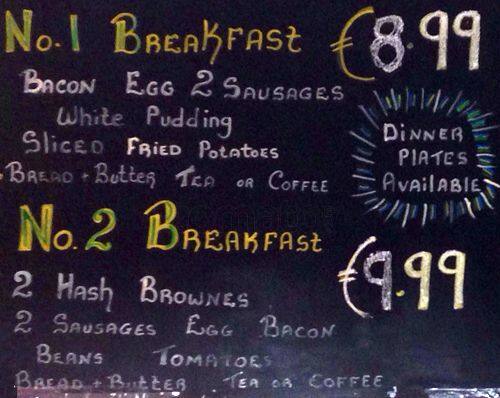 No.1 Breakfast €8.99
Bacon Egg 2 Sausages
White Pudding
Sliced Fried Potatoes
Bread + Butter Tea or Coffee
Dinner
Plates
Available
No.2 Breakfast €9.99
2 Hash Brownes
2 Sausages Egg Bacon
Beans Tomatoes
Bread + Butter Tea or Coffee